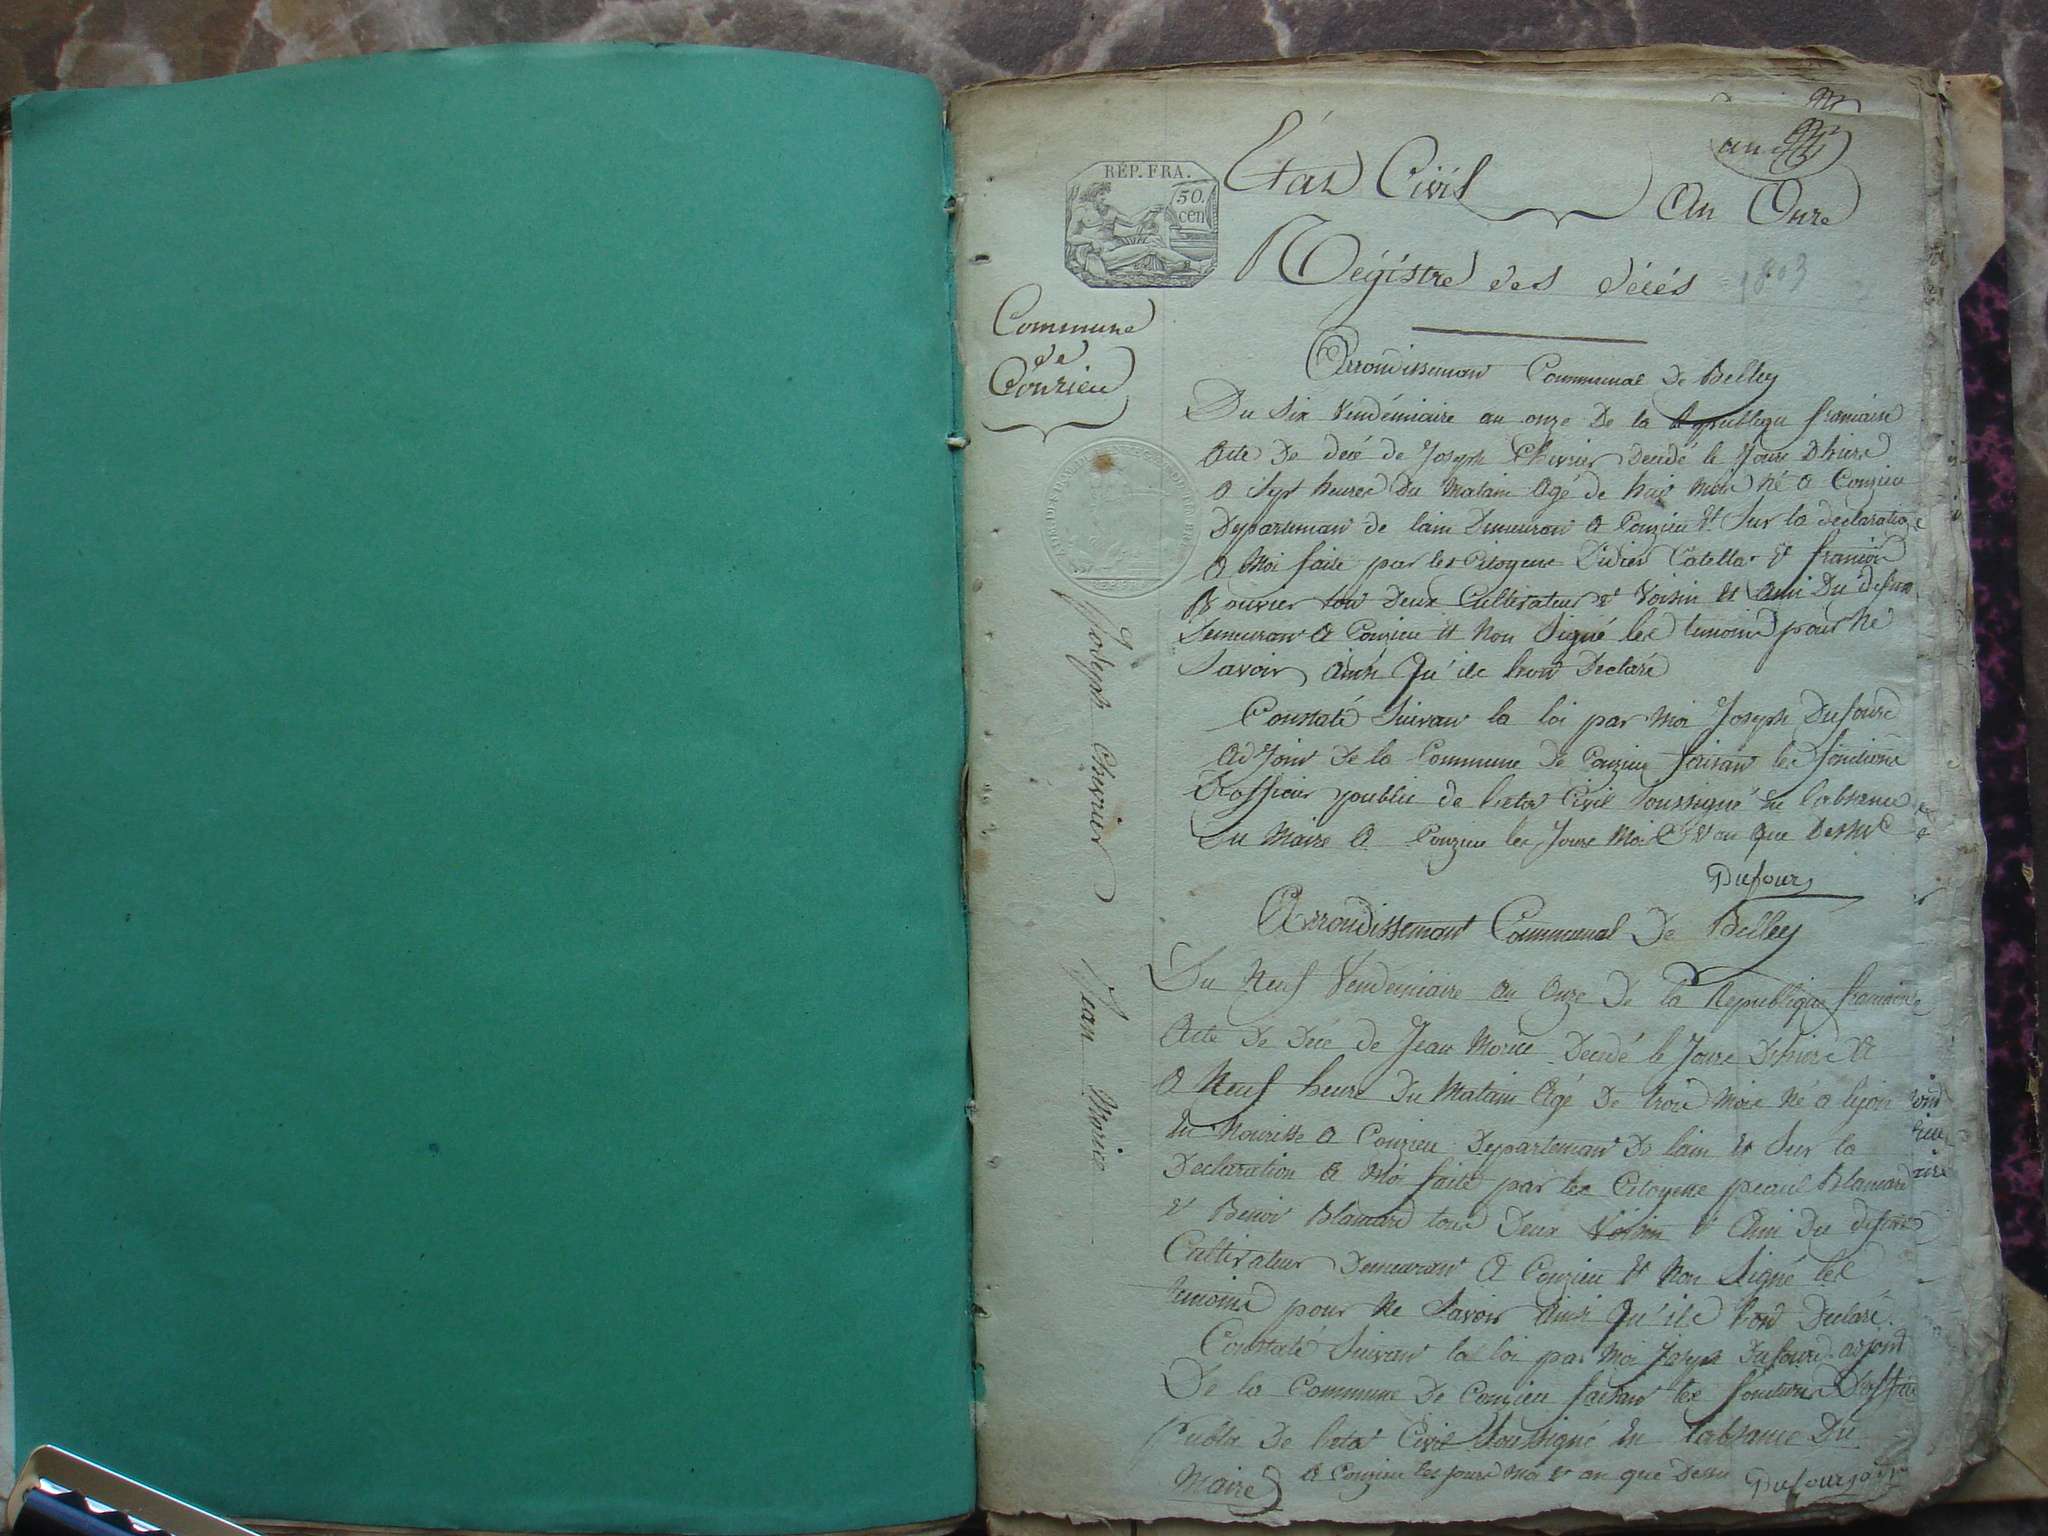 RÉP. FRA.
50.
cen
Etat Civil
An Onze
Régistre des décés
1803
Commune
de
Conzieu
Arrondisseman Communal De Belley
Du Six Vendémiaire an onze De la Republique française
Acte De décé de Joseph Chevrier Decedé le Joure Dhiere
A Sept heures Du Matain Agé de huit mois Né A Conzieu
Departeman de lain Demeuran A Conzieu Et Sur la déclaration
A Moi faite par les Citoyens Didier Catella Et françois
Bouvier tou Deux Cultivateur Et Voisin Et Ami Du defun
Demeuran A Conzieu Et Non Signé les temoins pour Ne
Savoir Ainsi Qu'ils hon Declaré
Constaté Suivan la loi par Moi Joseph Dufoure
Adjoin De la Commune De Conzieu faisan les fonctions
D'officier public de letat Civil Soussigné En labsance
Du Maire A Conzieu les Joure Moi Et an que Dessus
Dufour
Joseph Chevrier
Arrondissemant Communal De Belley
Du Neuf Vendemiaire an Onze De la Republique francaise
Acte De Décé de Jean Morice Decedé le Joure Dhiere Et
A Neuf heure Du Matain Agé De trois Mois Né A lyon
En Nourisse A Conzieu Departeman De lain Et Sur la
Declaration A Moi faite par les Citoyens peaul Blancard
Et Benoi Blancard tous Deux Voisin Et Ami Du defun
Cultivateur Demeuran A Conzieu Et Non Signé les
temoins pour Ne Savoir Ainsi Qu'ils hon Declaré.
Constaté Suivan la loi par Moi Joseph Dufoure adjoin
De la Commune De Conzieu faisan les fonctions D'officie
Public De letat Civil Soussigné En labsance Du
Maire A Conzieu les joure Moi Et an que Dessu Dufour
Jean Morice